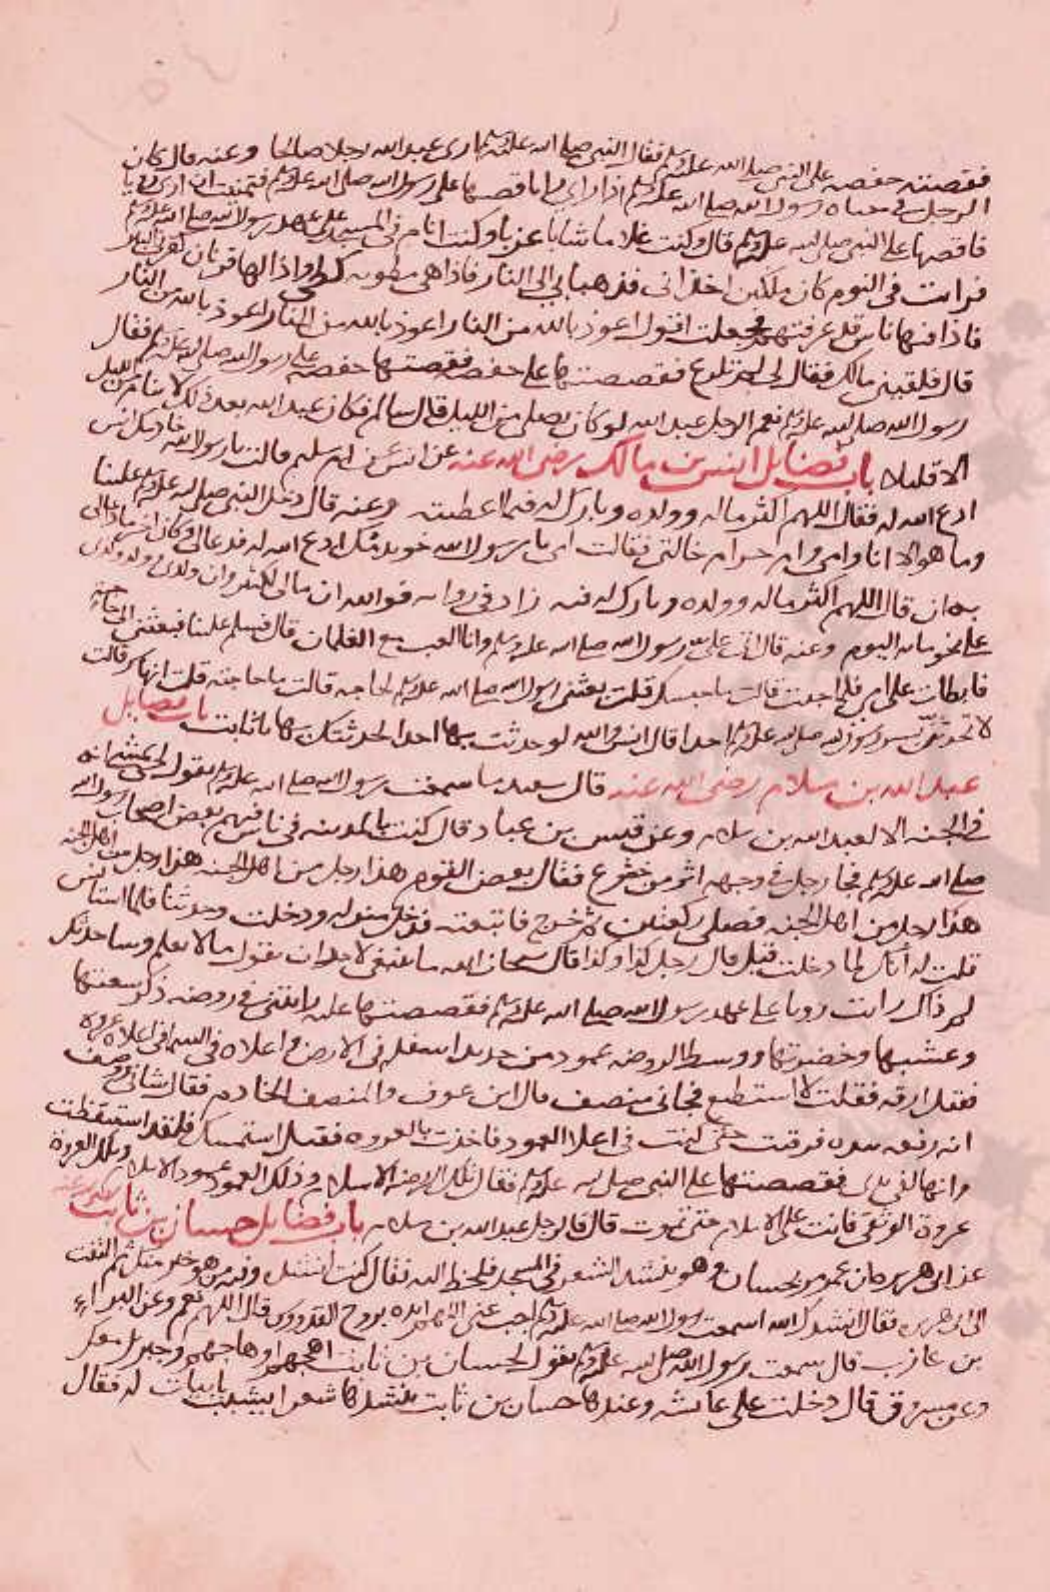 فقصته حفصه على النبي صلى الله عليه وسلم فقال النبي صلى الله عليه وسلم ارى عبد الله رجلا صالحا وعنه قال كان
الرجل في حياه رسول الله صلى الله عليه وسلم اذا راى رويا قصها على رسول الله صلى الله عليه وسلم فتمنيت ان ارى رويا
فاقصها على النبي صلى الله عليه وسلم قال وكنت غلاما شابا عزبا وكنت انام في المسجد على عهد رسول الله صلى الله عليه وسلم
فرايت في النوم كان ملكين اخذاني فذهبا بي الى النار فاذا هي مطويه كطي واذا لها قرنان كقرني البير
فاذا فيها ناس قد عرفتهم فجعلت اقول اعوذ بالله من النار اعوذ بالله من النار اعوذ بالله من النار
قال فلقيني مالك فقال لي لم ترع فقصصتها على حفصه فقصتها حفصه على رسول الله صلى الله عليه وسلم فقال
رسول الله صلى الله عليه وسلم نعم الرجل عبد الله لو كان يصلي من الليل قال سالم فكان عبد الله بعد ذلك لا ينام من الليل
الا قليلا باب فضايل انس بن مالك رضي الله عنه عن انس عن ام سليم قالت يا رسول الله خادمك انس
ادع الله له فقال اللهم اكثر ماله وولده وبارك له فيما اعطيته وعنه قال دخل النبي صلى الله عليه وسلم علينا
وما هو الا انا وامي وام حرام خالتي فقالت امي يا رسول الله خويدمك ادع الله له فدعا لي وكان اخر ما دعا لي
به ان قال اللهم اكثر ماله وولده وبارك له فيه زاد في روايه فوالله ان مالي لكثير وان ولدي وولد ولدي
على نحو مايه اليوم وعنه قال اتى علي رسول الله صلى الله عليه وسلم وانا العب مع الغلمان قال فسلم علينا فبعثني الى حاجة
فابطات على امي فلما جيت قالت ما حبسك قلت بعثني رسول الله صلى الله عليه وسلم لحاجه قالت ما حاجته قلت انها سر قالت
لا تحدثن بسر رسول الله صلى الله عليه وسلم احدا قال انس والله لو حدثت بها احدا لحدثتك بها يا ثابت باب فضايل
عبد الله بن سلام رضي الله عنه قال سعد ما سمعت رسول الله صلى الله عليه وسلم يقول لحي يمشي انه
في الجنه الا لعبد الله بن سلام وعن قيس بن عباد قال كنت بالمدينه في ناس فيهم بعض اصحاب رسول الله
صلى الله عليه وسلم فجا رجل في وجهه اثر من خشوع فقال بعض القوم هذا رجل من اهل الجنه هذا رجل من اهل الجنه
هذا رجل من اهل الجنه فصلى ركعتين ثم خرج فاتبعته فدخل منزله ودخلت وحدثنا فلما استانس
قلت له انك لما دخلت قبل قال رجل كذا وكذا قال سبحان الله ما ينبغي لاحد ان يقول ما لا يعلم وساحدثك
لم ذاك رايت رويا على عهد رسول الله صلى الله عليه وسلم فقصصتها عليه رايتني في روضه ذكر سعتها
وعشبها وخضرتها ووسط الروضه عمود من حديد اسفله في الارض واعلاه في السما في اعلاه عروه
فقيل ارقه فقلت لا استطيع فجاني منصف قال ابن عوف والمنصف الخادم فقال بثيابي وصف
انه رفعه بيده فرقيت حتى كنت في اعلا العمود فاخذت بالعروه فقيل استمسك فلقد استيقظت
وانها لفي يدي فقصصتها على النبي صلى الله عليه وسلم فقال تلك الروضه الاسلام وذلك العمود عمود الاسلام وتلك العروة
عروة الوثقى فانت على الاسلام حتى تموت قال والرجل عبد الله بن سلام باب فضايل حسان بن ثابت رضي الله عنه
عن ابي هريره ان عمر مر بحسان وهو ينشد الشعر في المسجد فلحظ اليه فقال كنت انشد وفيه من هو خير منك ثم التفت
الى ابي هريره فقال انشدك الله اسمعت رسول الله صلى الله عليه وسلم اجب عني اللهم ايده بروح القدوس قال اللهم نعم وعن البراء
بن عازب قال سمعت رسول الله صلى الله عليه وسلم يقول لحسان بن ثابت اهجهم او هاجهم وجبريل معك
وعن مسروق قال دخلت على عائشه وعندها حسان بن ثابت ينشدها شعرا يشبب بابيات له فقال